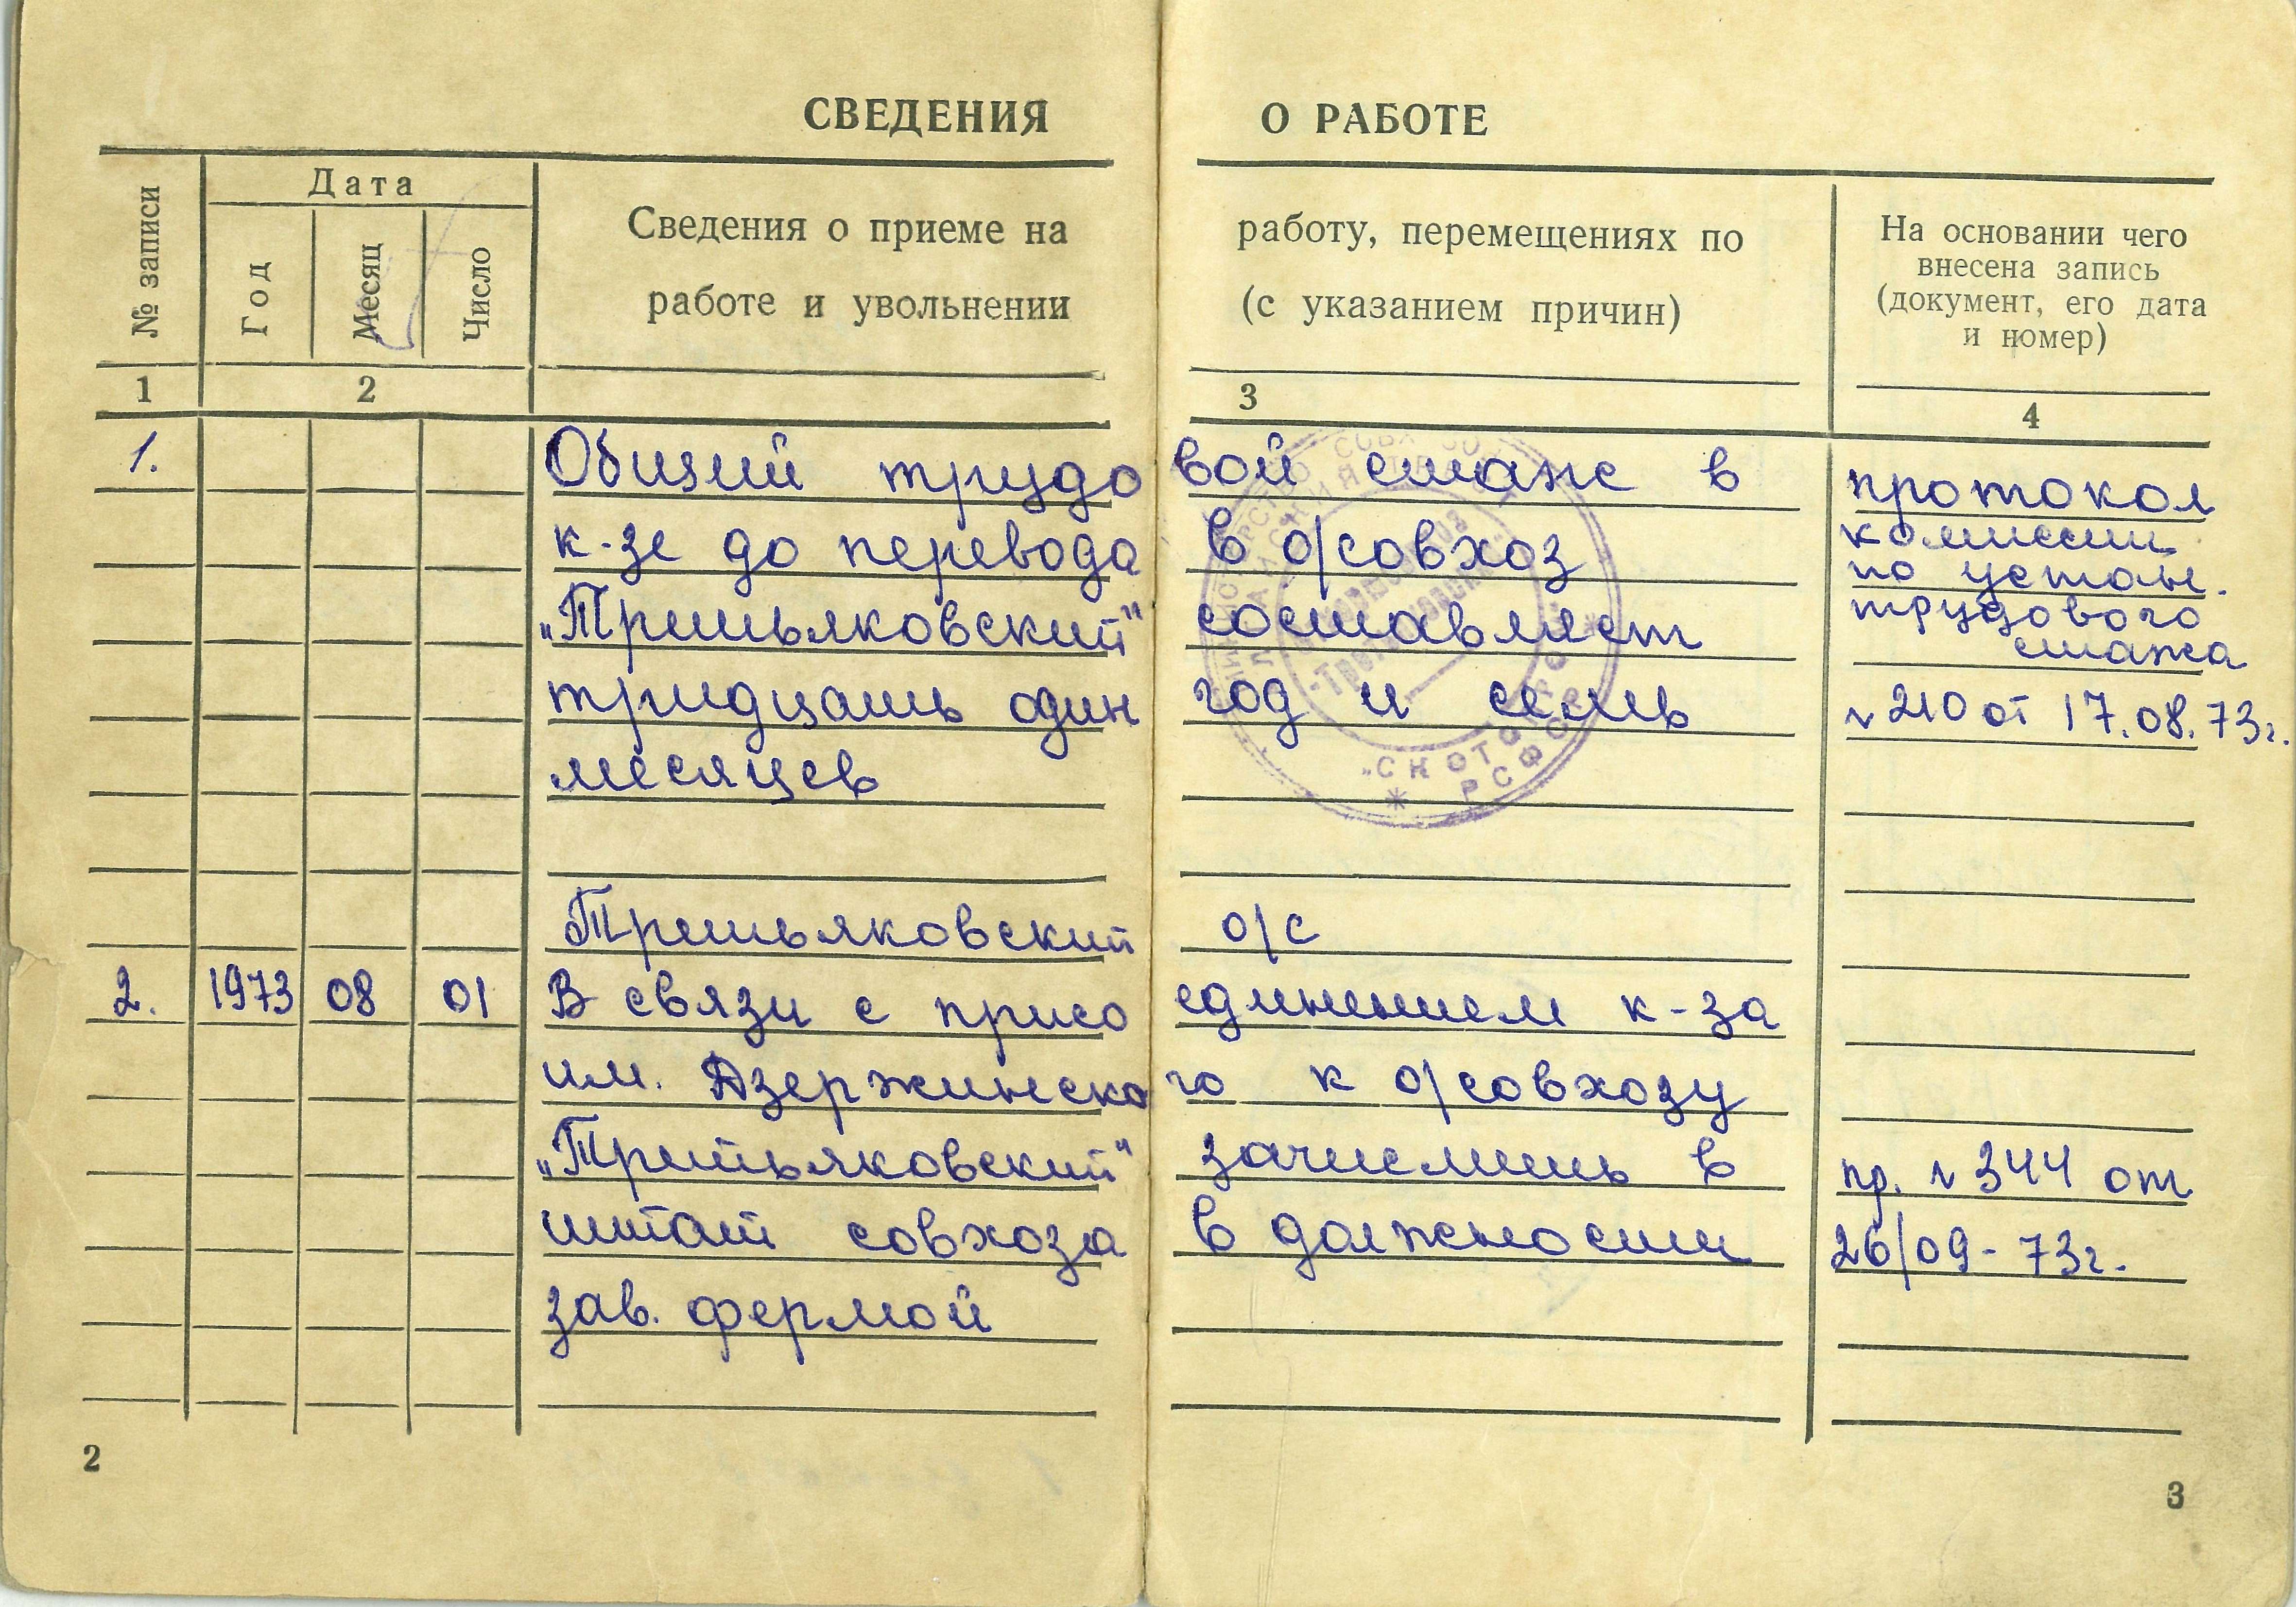 СВЕДЕНИЯ О РАБОТЕ
№ записи
Дата
Год
Месяц
Число
Сведения о приеме на работу, перемещениях по
работе и увольнении (с указанием причин)
На основании чего
внесена запись
(документ, его дата
и номер)
1 2 3 4
1. Общий трудо вой стаж в
к-зе до перевода в о/совхоз
„Третьяковский" составляет
тридцать один год и семь
месяцев
протокол
комиссии
по устан.
трудового
стажа
№ 210 от 17.08.73г.
Третьяковский о/с
2. 1973 08 01 В связи с присо единением к-за
им. Дзержинско го к о/совхозу
„Третьяковский" зачислить в
штат совхоза в должности
зав. фермой
пр. № 344 от
26/09-73г.
"СКОТО
РСФСР
2
3